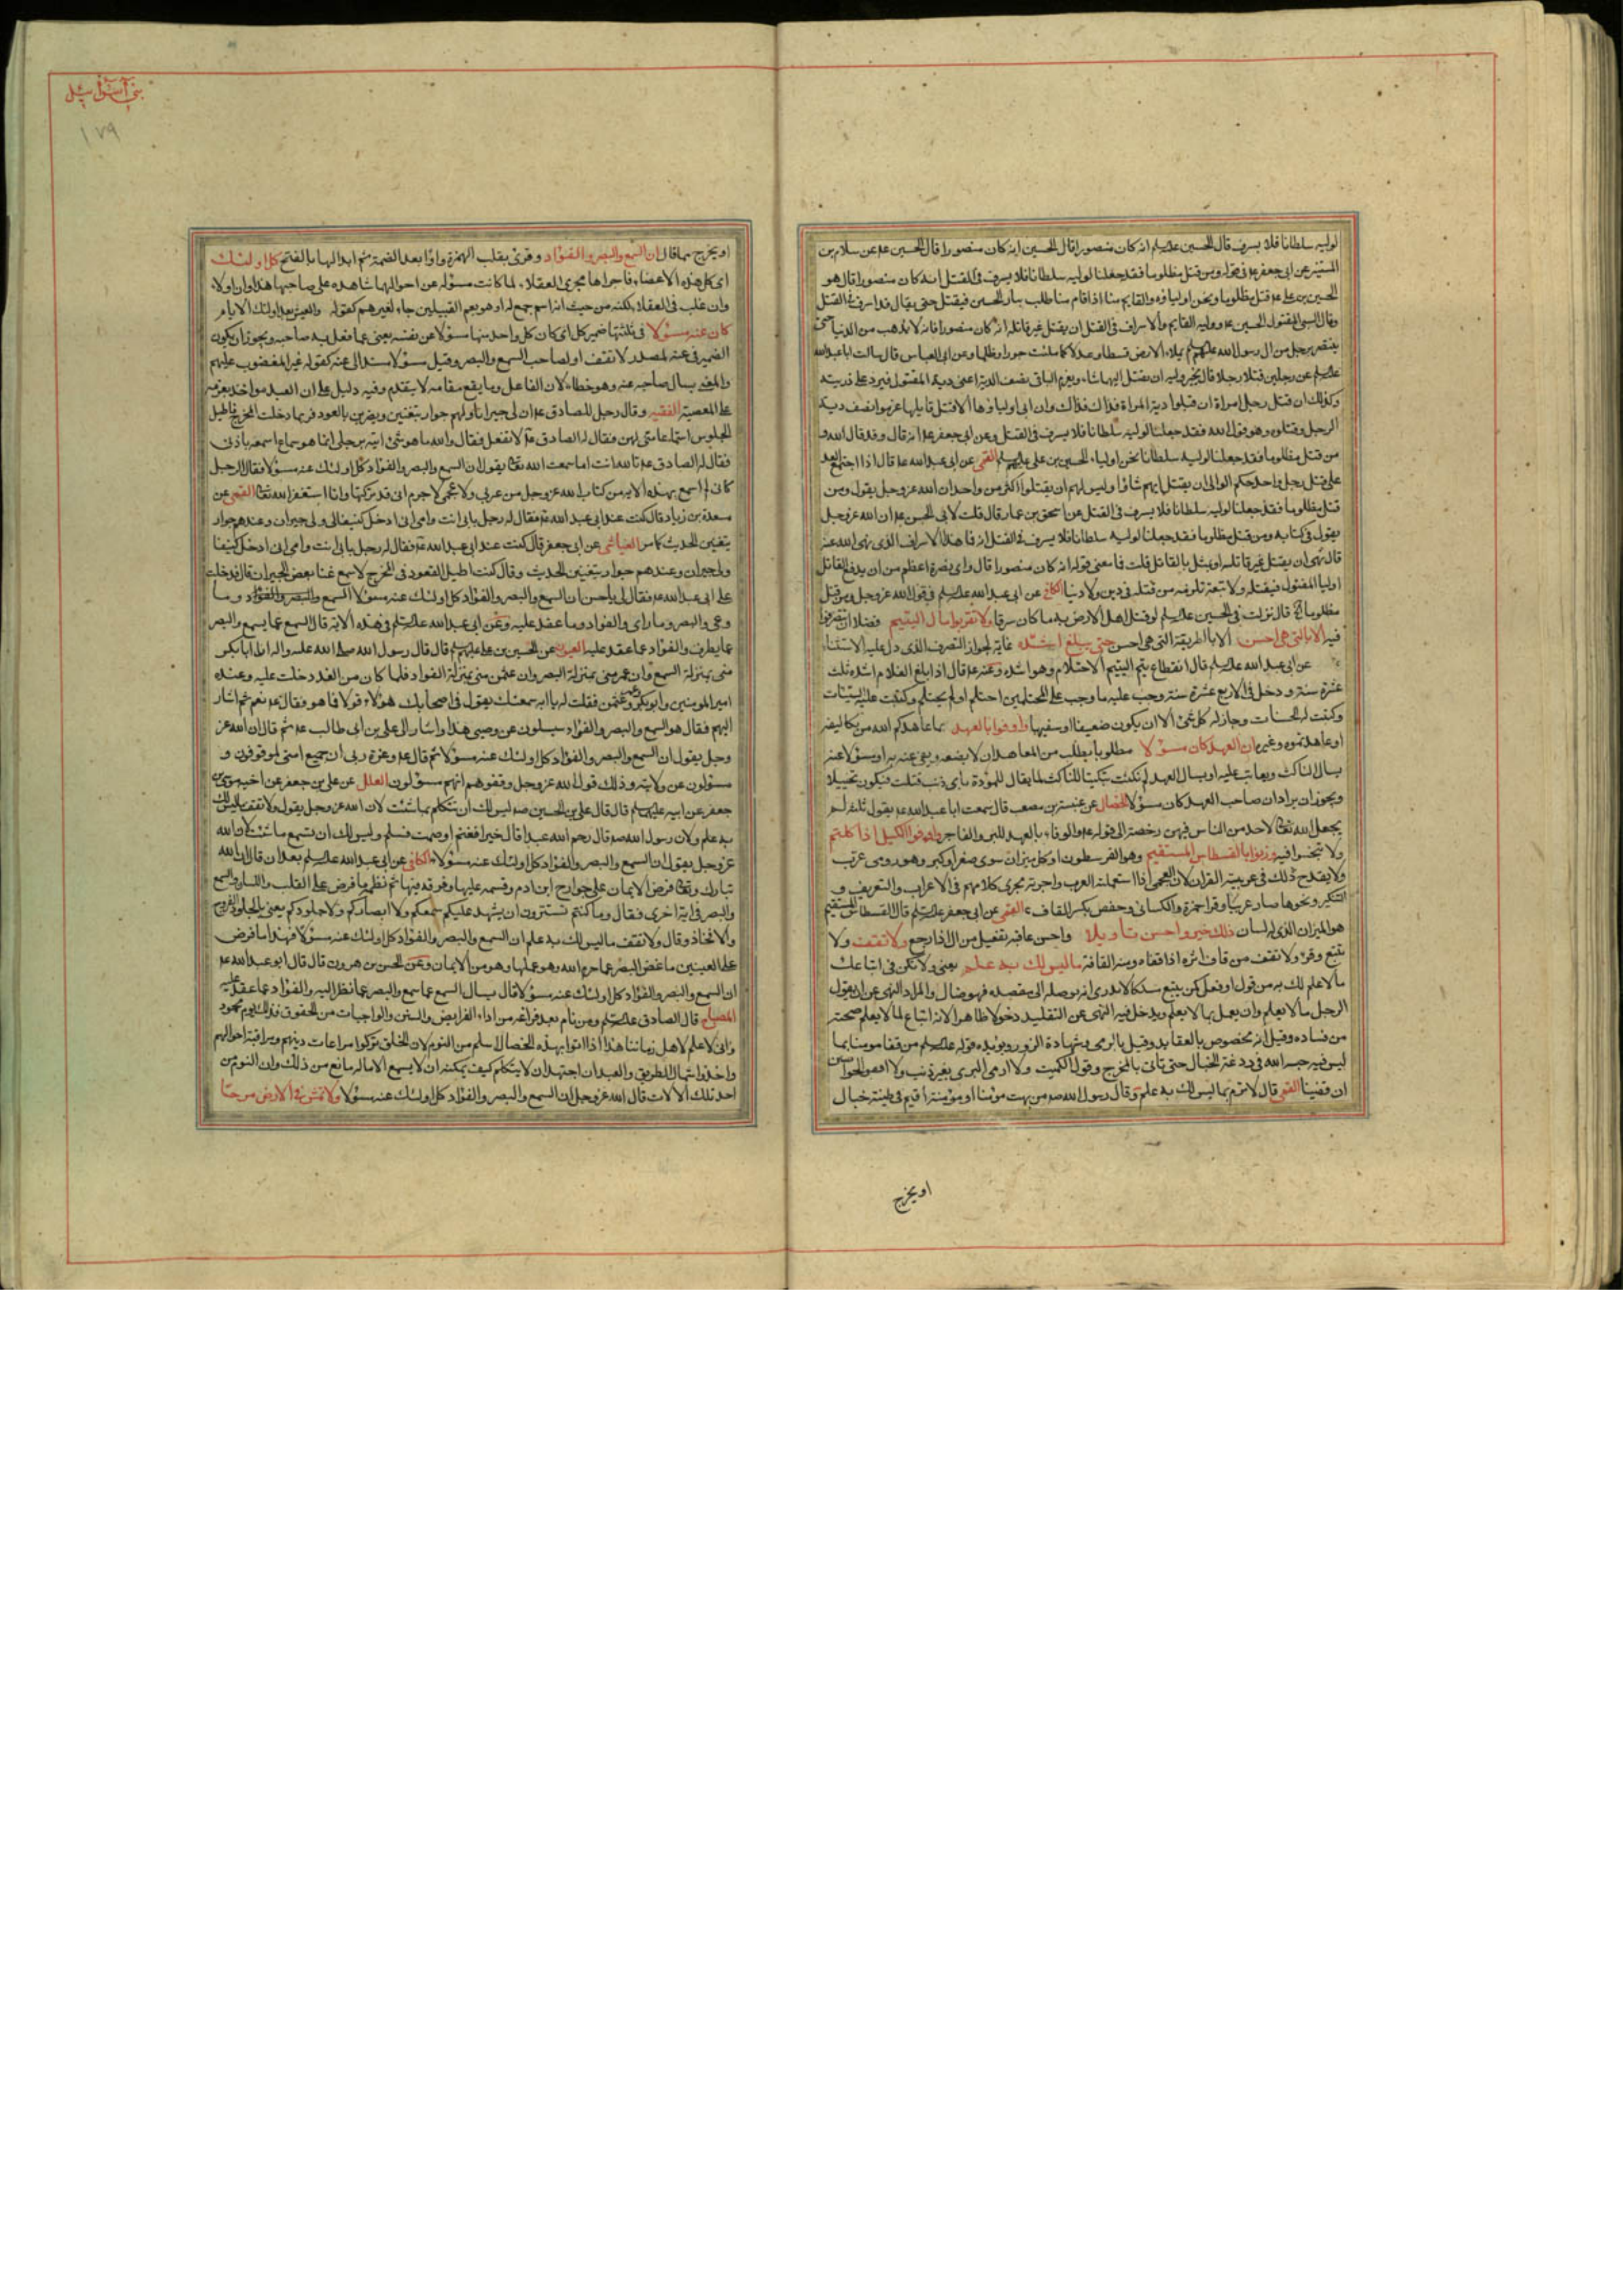 لوليه سلطانا فلا يسرف قال الحسين عليه السلام انه كان منصورا قال الحسين انه كان منصورا قال الحسين عم عن سلام بن
المستنير عن ابى جعفر عم فى قوله ومن قتل مظلوما فقد جعلنا لوليه سلطانا فلا يسرف فى القتل انه كان منصورا قال هو
الحسين بن على عم قتل مظلوما ونحن اولياؤه والقايم منا اذا قام منا طلب بثار الحسين فيقتل حتى يقال قد اسرف فى القتل
وقال المقتول الحسين عم ووليه القايم والاسراف فى القتل ان يقتل غير قاتله انه كان منصورا فانه لا يذهب من الدنيا حتى
ينتصر برجل من ال رسول الله يملاء الارض قسطا وعدلا كما ملئت جورا وظلما وعن ابى العباس قال سالت ابا عبد الله
عن رجلين قتلا رجلا قال يخير وليه ان يقتل ايهما شاء ويغرم الباقى نصف الدية اعنى دية المقتول فيرد على ذريته
وكذلك ان قتل رجل امراة ان قبلوا دية المراة فذاك وان ابى اولياؤها الا قتل قاتلها غرموا نصف دية
الرجل وقتلوه وهو قول الله فقد جعلنا لوليه سلطانا فلا يسرف فى القتل وعن ابى جعفر عم
من قتل مظلوما فقد جعلنا لوليه سلطانا نحن اولياء الحسين بن على القمى عن ابى عبد الله عم قال اذا اجتمع العدة
على قتل رجل واحد حكم الوالى ان يقتل ايهم شاؤا وليس لهم ان يقتلوا اكثر من واحد ان الله عز وجل يقول ومن
قتل مظلوما فقد جعلنا لوليه سلطانا فلا يسرف فى القتل عن اسحق بن عمار قال قلت لابى الحسن عم ان الله عز وجل
يقول فى كتابه ومن قتل مظلوما فقد جعلنا لوليه سلطانا فلا يسرف فى القتل فما هذا الاسراف الذى نهى الله عنه
قال نهى ان يقتل غير قاتله او يمثل بالقاتل قلت فما معنى قوله انه كان منصورا قال واى نصرة اعظم من ان يدفع القاتل
اوليا المقتول فيقتله ولا تبعة تلزمه من قتله فى دين ولا دنيا الكافى عن ابى عبد الله فى قول الله عز وجل ومن قتل
مظلوما قال نزلت فى الحسين لو قتل اهل الارض به ما كان سرفا ولا تقربوا مال اليتيم فضلا ان تتصرفوا
فيه الا بالتى هى احسن الا بالطريقة التى هى احسن حتى يبلغ اشده غاية لجواز التصرف الذى دل عليه الاستثناء
عن ابى عبد الله قال انقطاع يتم اليتيم الاحتلام وهو اشده وعنه عم قال اذا بلغ الغلام اشده ثلث
عشرة سنة ودخل فى الاربع عشرة سنة وجب عليه ما وجب على المحتلمين احتلم او لم يحتلم وكتبت عليه السيئات
وكتبت له الحسنات وجاز له كل شئ الا ان يكون ضعيفا او سفيها واوفوا بالعهد بما عاهدكم الله من تكاليفه
او عاهدتموه وغيره ان العهد كان مسؤلا مطلوبا يطلب من المعاهد ان لا يضيعه ويفى به او مسؤلا عنه
يسال الناكث ويعاتب عليه او يسال العهد لم نكثت تبكيتا للناكث كما يقال للموؤدة باى ذنب قتلت فيكون تخييلا
ويجوز ان يراد ان صاحب العهد كان مسؤلا الخصال عن عنبسة بن مصعب قال سمعت ابا عبد الله عم يقول ثلثة لم
يجعل الله تعالى لاحد من الناس فيهن رخصة الى قوله عم والوفاء بالعهد للبر والفاجر واوفوا الكيل اذا كلتم
ولا تبخسوا فيه وزنوا بالقسطاس المستقيم وهو القرسطون او كل ميزان سوى صغر او كبر وهو رومى عرب
ولا يقدح ذلك فى عربية القران لان العجمى اذا استعملته العرب واجرته مجرى كلامهم فى الاعراب والتعريف و
التنكير ونحوها صار عربيا وقرا حمزة والكسائى وحفص بكسر القاف القمى عن ابى جعفر قال القسطاس المستقيم
هو الميزان الذى له لسان ذلك خير واحسن تاويلا واحسن عاقبة تفعيل من ال اذا رجع ولا تقف ولا
تتبع وقرئ ولا تقف من قاف اثره اذا قفاه ومنه القافة ما ليس لك به علم يعنى ولا تكن فى اتباعك
ما لا علم لك به من قول او فعل كمن يتبع مسلكا لا يدرى انه يوصله الى مقصده فهو ضال والمراد النهى عن ان يقول
الرجل ما لا يعلم وان يعمل بما لا يعلم ويدخل فيه النهى عن التقليد دخولا ظاهرا لانه اتباع لما لا يعلم صحته
من فساده وقيل انه مخصوص بالعقايد وقيل بالرمى وشهادة الزور ويؤيده قوله من قفا مؤمنا بما
ليس فيه حبسه الله فى ردغة الخبال حتى ياتى بالمخرج وقول الكميت ولا ارمى البرى بغير ذنب ولا اقفو الحواصن
ان قفينا القمى قال لا ترم بما ليس لك به علم وقال رسول الله صم من بهت مؤمنا او مؤمنة اقيم فى طينة خبال
او يخرج
بنى اسرائيل
١٧٩
او يخرج مما قال ان السمع والبصر والفؤاد وقرئ بقلب الهمزة واوا بعد الضمة ثم ابدالها بالفتح كل اولئك
اى كل هذه الاعضاء فاجراها مجرى العقلاء لما كانت مسؤلة عن احوالها شاهدة على صاحبها هذا وان اولاء
وان غلب فى العقلاء لكنه من حيث انه اسم جمع لذا وهو يعم القبيلين جاء لغيرهم كقوله والعيش بعد اولئك الايام
كان عنه مسؤلا فى ثلثتها ضمير كل اى كان كل واحد منها مسؤلا عن نفسه يعنى عما فعل به صاحبه ويجوز ان يكون
الضمير فى عنه لمصدر لا تقف او لصاحب السمع والبصر وقيل مسؤلا مسند الى عنه كقوله غير المغضوب عليهم
والمعنى يسال صاحبه عنه وهو خطاء لان الفاعل وما يقوم مقامه لا يتقدم وفيه دليل على ان العبد مواخذ بعزمه
على المعصية الفقيه وقال رجل للصادق عم ان لى جيرانا ولهم جوار يتغنين ويضربن بالعود فربما دخلت المخرج فاطيل
الجلوس استماعا منى لهن فقال له الصادق عم لا تفعل فقال والله ما هو شئ اتيه برجلى انما هو سماع اسمعه باذنى
فقال له الصادق عم تالله انت اما سمعت الله تعالى يقول ان السمع والبصر والفؤاد كل اولئك كان عنه مسؤلا فقال الرجل
كانى لم اسمع بهذه الاية من كتاب الله عز وجل من عربى ولا عجمى لا جرم انى قد تركتها وانا استغفر الله تعالى القمى عن
مسعدة بن زياد قال كنت عند ابى عبد الله عم فقال له رجل بابى انت وامى انى ادخل كنيفا لى ولى جيران وعندهم جوار
يتغنين الحديث كما مر العياشى عن ابى جعفر قال كنت عند ابى عبد الله عم فقال له رجل بابى انت وامى انى ادخل كنيفا
ولى جيران وعندهم جوار يتغنين الحديث وقال كنت اطيل القعود فى المخرج لاسمع غناء بعض الجيران قال فدخلت
على ابى عبد الله عم فقال لى يا حسن ان السمع والبصر والفؤاد كل اولئك كان عنه مسؤلا السمع والبصر والفؤاد وما
وعى والبصر وما راى والفؤاد وما عقد عليه وعن ابى عبد الله فى هذه الاية قال السمع عما يسمع والبصر
عما يطرف والفؤاد عما عقد عليه العيون عن الحسين بن على قال قال رسول الله صلى الله عليه واله ان ابا بكر
منى بمنزلة السمع وان عمر منى بمنزلة البصر وان عثمن منى بمنزلة الفؤاد فلما كان من الغد دخلت عليه وعنده
امير المؤمنين وابو بكر وعمر وعثمن فقلت له يا ابه سمعتك تقول فى اصحابك هؤلاء قولا فما هو فقال عم نعم ثم اشار
اليهم فقال هو السمع والبصر والفؤاد سيسلون عن وصيى هذا واشار الى على بن ابى طالب عم ثم قال ان الله عز
وجل يقول ان السمع والبصر والفؤاد كل اولئك كان عنه مسؤلا ثم قال عم وعزة ربى ان جميع امتى لموقوفون و
مسؤلون عن ولايته وذلك قول الله عز وجل وقفوهم انهم مسؤلون العلل عن على بن جعفر عن اخيه موسى بن
جعفر عن ابيه قال قال على بن الحسين ليس لك ان تتكلم بما شئت لان الله عز وجل يقول ولا تقف ما ليس لك
به علم ولان رسول الله صم قال رحم الله عبدا قال خيرا فغنم او صمت فسلم وليس لك ان تسمع ما شئت لان الله
عز وجل يقول ان السمع والبصر والفؤاد كل اولئك كان عنه مسؤلا الكافى عن ابى عبد الله بعد ان قال ان الله
تبارك وتعالى فرض الايمان على جوارح ابن ادم وقسمه عليها وفرقه فيها ثم نظم ما فرض على القلب واللسان والسمع
والبصر فى اية اخرى فقال وما كنتم تستترون ان يشهد عليكم سمعكم ولا ابصاركم ولا جلودكم يعنى بالجلود الفروج
والافخاذ وقال ولا تقف ما ليس لك به علم ان السمع والبصر والفؤاد كل اولئك كان عنه مسؤلا فهذا ما فرض
على العينين من غض البصر عما حرم الله وهو عملها وهو من الايمان وعن الحسن بن هرون قال قال ابو عبد الله عم
ان السمع والبصر والفؤاد كل اولئك كان عنه مسؤلا قال يسال السمع عما سمع والبصر عما نظر اليه والفؤاد عما عقد عليه
المصباح قال الصادق ومن نام بعد فراغه من اداء الفرايض والسنن والواجبات من الحقوق فذلك نوم محمود
وانى لا اعلم لاهل زماننا هذا اذا اتوا بهذه الخصال اسلم من النوم لان الخلق تركوا مراعات دينهم ومراقبة احوالهم
واخذوا شمال الطريق والعبد ان اجتهد ان لا يتكلم كيف يمكنه ان لا يسمع الا ما له مانع من ذلك وان النوم من
احد تلك الالات قال الله عز وجل ان السمع والبصر والفؤاد كل اولئك كان عنه مسؤلا ولا تمش فى الارض مرحا